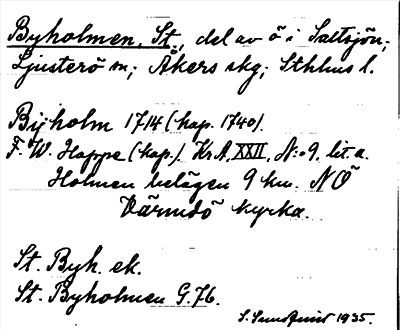 Byholmen, St., del av ö i Saltsjön;
Ljusterö sn; Åkers skg; Sthlms l.
Byholm 1714 (kap. 1740).
F. W. Hoppe (kap.). Kr. A. XXII, N:o 9, lit. a.
Holmen belägen 9 km. NÖ
Värmdö kyrka.
St. Byh. ek.
St. Byholmen G. 76.
S. Sundqvist 1935.